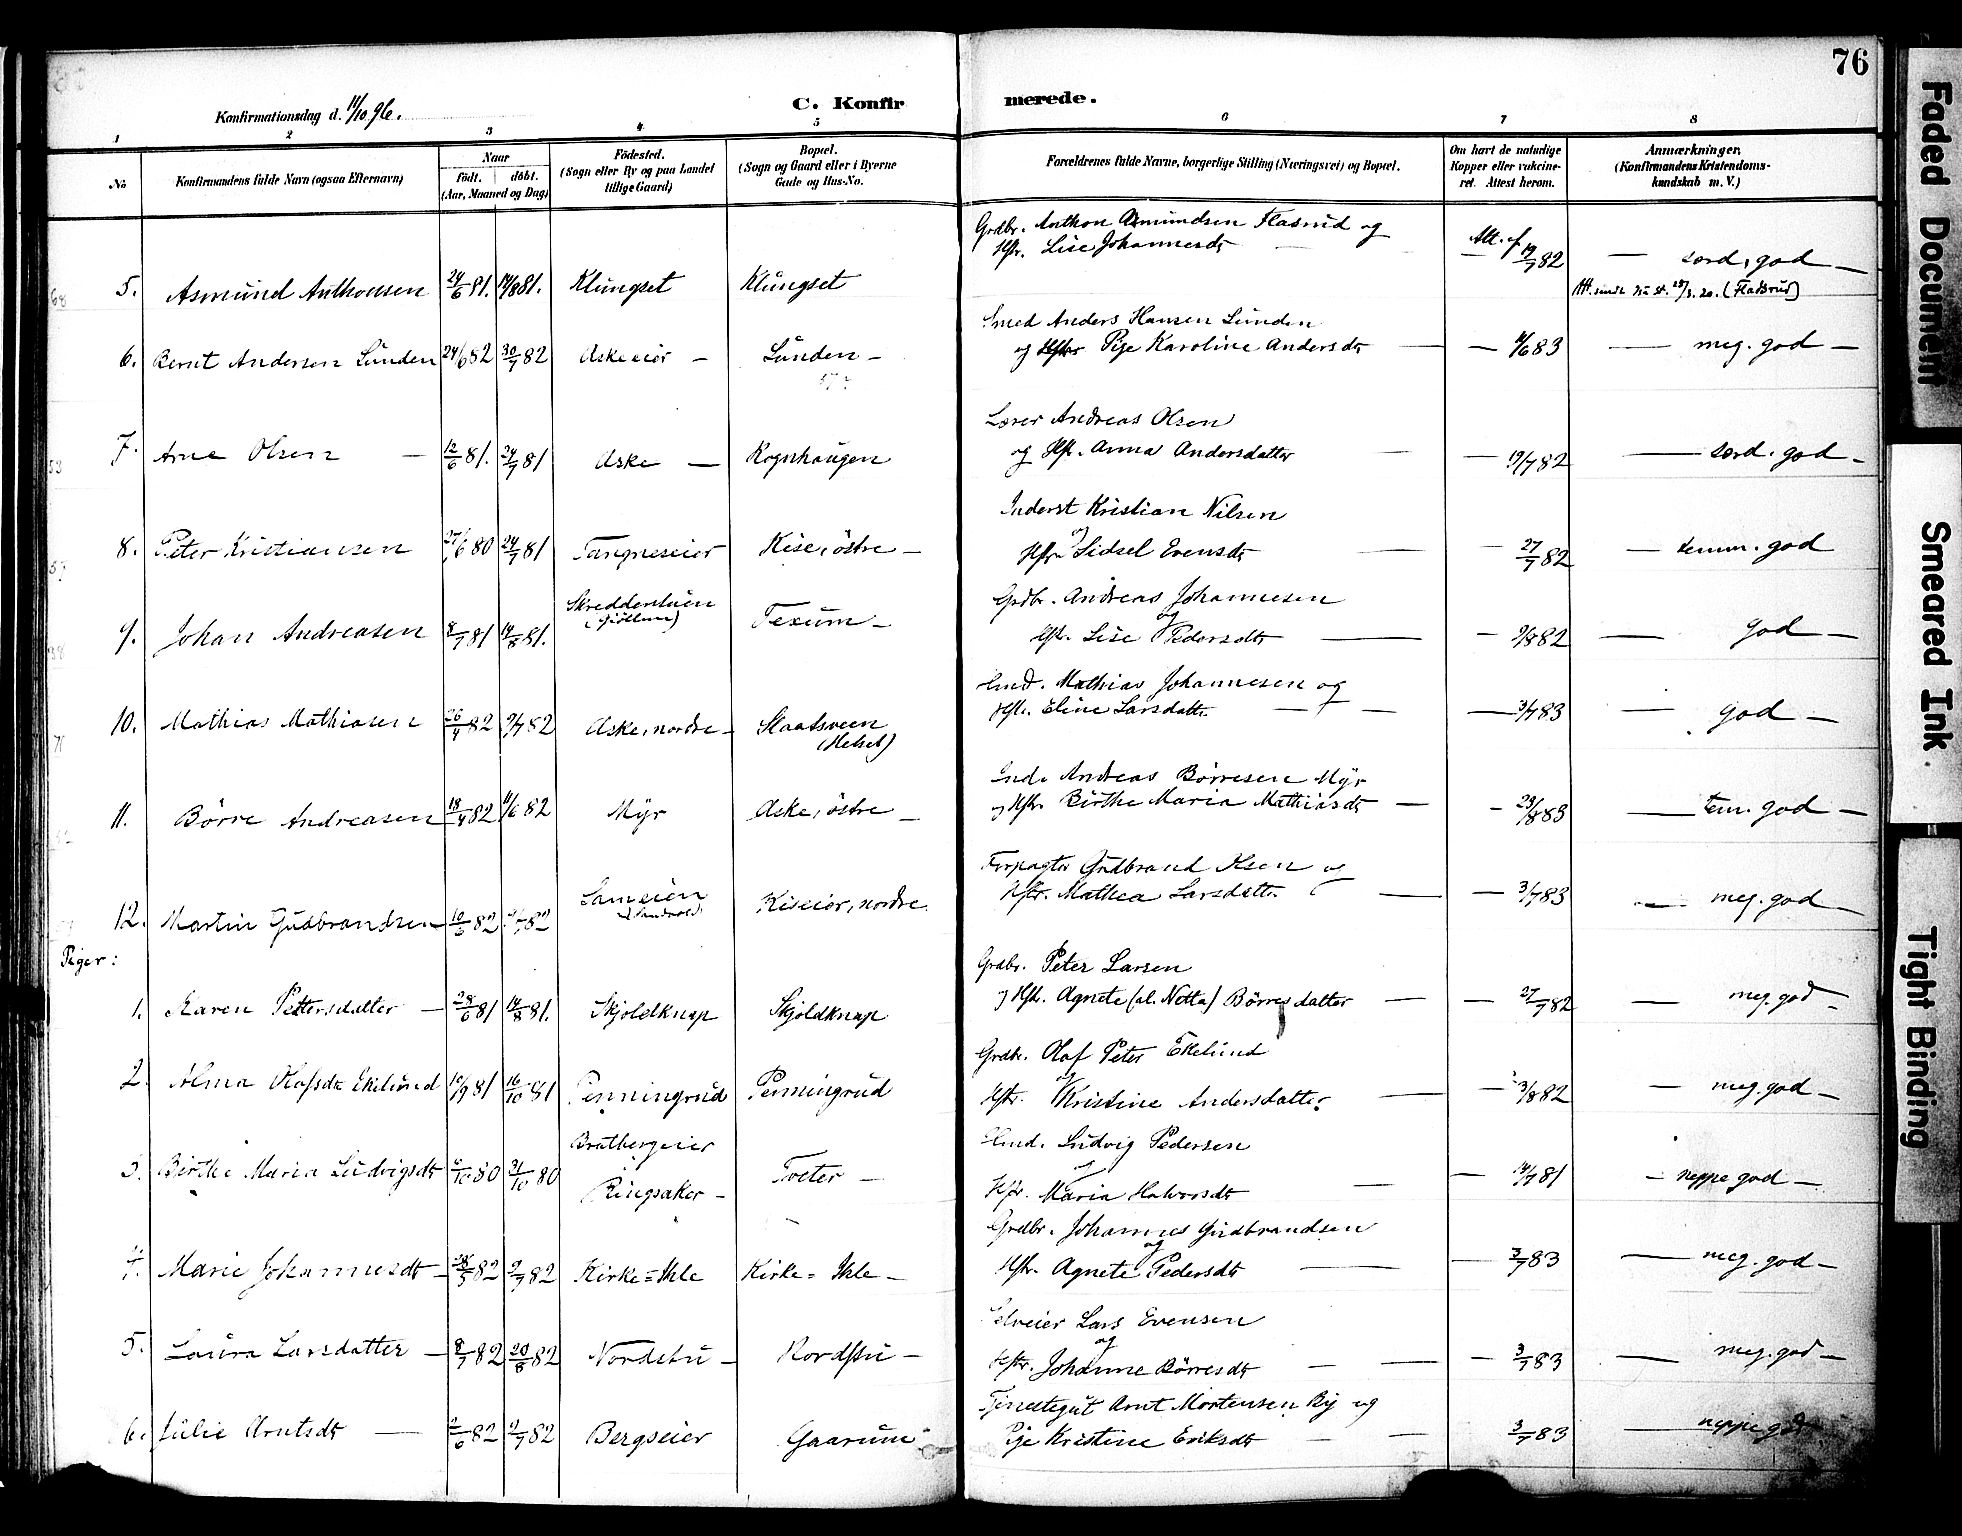 76
Konfirmationsdag d. 11/10 96.
C. Konfirmerede.
1 2 3 4 5 6 7 8
No
Konfirmandens fulde Navn (ogsaa Efternavn)
Naar
födt. döbt.
(Aar, Maaned og Dag)
Födested.
(Sogn eller By og paa Landet
tillige Gaard)
Bopæl.
(Sogn og Gaard eller i Byerne
Gade og Hus-No.
Forældrenes fulde Navne, borgerlige Stilling (Næringsvei) og Bopæl.
Om havt de naturlige
Kopper eller vakcine-
ret. Attest herom.
Anmærkninger.
(Konfirmandens Kristendoms-
kundskab m. V.)
Grdbr. Anthon Asmundsen Flasrud og
Hfr. Lise Johannesdt
5. Asmund Anthonsen 24/6 81. 14/8 81. Klungset Klungset Att. af 19/7 82 særd. god
(Fladsrud)
Smed Anders Hansen Lunden
6. Bernt Andersen Lunden 24/6 82 30/7 82 Askeeier Lunden og Pige Karoline Andersdt 4/6 83 meg. god
Lærer Andreas Olsen
7. Arne Olsen 12/6 81. 24/7 81 Aske Rognhaugen og Hfr. Anna Andersdatter 19/7 82 særd. god
Inderst Kristian Nilsen
8. Peter Kristiansen 27/6 80 24/7 81 Tangneseier Kise, östre og Hfr. Sidsel Evensdt 27/7 82 temm. god
Grdbr. Andreas Johannesen
Skredderstuen
9. Johan Andreasen 8/7 81 14/8 81. Texum og Hfr. Lise Pedersdt 9/8 82 God
Mathias Johannesen og
10. Mathias Mathiasen 26/4 82 9/7 82 Aske, nordre Staatsveen Hfr. Eline Larsdatter 3/7 83 God
(Helset)
Ind. Andreas Börresen Myr
11. Börre Andreasen 18/4 82 11/6 82 Myr Aske, östre og Hfr. Birthe Maria Mathiasdt 23/8 83 tem. god
Forpagter Gudbrand Olsen og
12. Martin Gudbrandsen 10/5 82 Kiseier, nordre Hfr. Mathea Larsdatter 3/7 83 meg. god
Piger:
Grdbr. Peter Larsen
1. Karen Pettersdatter 28/6 81 14/8 81. Skjoldknap Skjoldknap og Hfr. Agnete (al. Netta) Börresdatter 27/7 82 meg. god
Grdbr. Olaf Peter Ekelund
2. Alma Olafsdt Ekelund 10/9 81 16/10 81 Penningrud Penningrud og Hfr. Kristine Andersdatter 3/8 82 meg. god
Ludvig Pedersen
Bratbergeier
3. Birthe Maria Ludvigsdt 31/10 80 Ringsaker Tveter og Hfr. Maria Halvorsdt 14/7 81 neppe god
Grdbr. Johannes Gudbrandsen
4. Marie Johannesdt 28/5 82 9/7 82 Kirke=Skle Kirke=Skle og Hfr. Agnete Pedersdt 3/7 83 meg. god
Selveier Lars Evensen
5. Laura Larsdatter 8/7 82 20/8 82 Nordstu Nordstu og Hfr. Johanne Börresdt 3/7 83 meg. god
Tjenestegut Arnt Mortensen By og
6. Julie Arntsdt 2/6 82 9/7 82 Bergseier Gaarum Pige Kristine Eriksdt 3/7 83 neppe god
Faded Document
Smeared Ink
Tight Binding